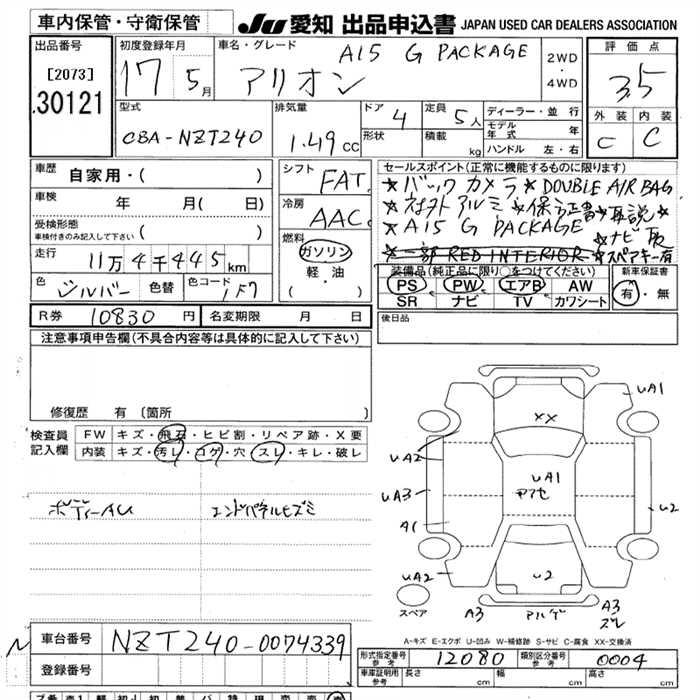 車内保管・守衛保管 JU 愛知 出品申込書 JAPAN USED CAR DEALERS ASSOCIATION
出品番号 初度登録年月 車名・グレード A15 G PACKAGE 2WD ・ 4WD 評価点
[2073] 17 5月 アリオン 3.5
30121 型式 排気量 ドア 4 定員 5人 ディーラー・並行 外装 内装
CBA-NZT240 1.49cc 形状 積載 kg モデル年式 年 C C
ハンドル 左・右
車歴 自家用・( ) シフト FAT セールスポイント(正常に機能するものに限ります)
車検 年 月( 日) 冷房 AAC ★バックカメラ ★DOUBLE AIR BAG
受検形態 車検付きのみ記入して下さい ( ) 燃料 ★社外アルミ ★保証書★取説★
走行 11万4千445km ガソリン ★A15 G PACKAGE ★ナビ取
軽・油 ★一部 RED INTERIOR ★スペアキー有
色 シルバー 色替 色コード 1F7 (・) 装備品(純正品に限り○をつけてください) 新車保証書
PS PW エアB AW 有・無
SR ナビ TV カワシート
R券 10830円 名変期限 月 日 後日品
注意事項申告欄(不具合内容等は具体的に記入して下さい)
修復歴 有 [箇所 ]
検査員 FW キズ・飛石・ヒビ割・リペア跡・X要
記入欄 内装 キズ・汚レ・コゲ・穴・スレ・キレ・破レ
ボディーAU エンドパネルヒズミ
UA1
XX
UA2
UA1
UA3 アアセ U2
A1
UA2 U2
スペア A3 アルゲ A3 ズレ
A-キズ E-エクボ U-凹み W-補修跡 S-サビ C-腐食 XX-交換済
車台番号 NZT240-0074339 形式指定番号 参考 12080 類別区分番号 参考 0004
登録番号 車庫証明用 参考 長さ cm 幅 cm 高さ cm